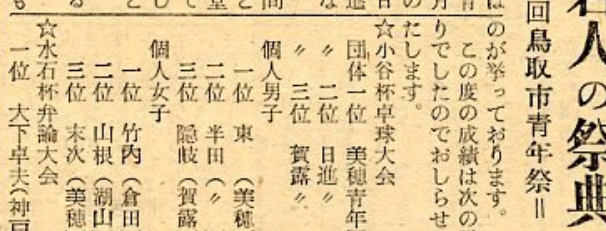 若人の祭典
回鳥取市青年祭＝
のが挙っております。
この度の成績は次の
りでしたのでおしらせ
たします。
☆小谷杯卓球大会
団体一位　美穂青年
〃　二位　日進〃
〃　三位　賀露〃
個人男子
一位　東（美穂
二位　半田（〃
三位　隠岐（賀露
個人女子
一位　竹内（倉田
二位　山根（湖山
三位　末次（美穂
☆水石杯弁論大会
一位　大下卓夫（神戸